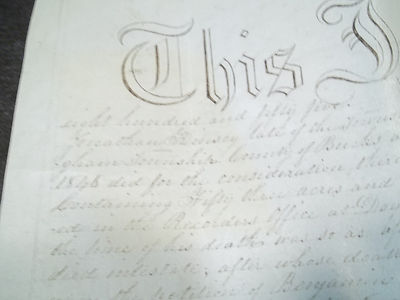 This I
eight hundred and fifty five
Jonathan Kinsey late of the Towns
gham Township County of Bucks a
1846 did for the consideration there
Containing Fifty three acres and
ed in the Recorders Office at Doy
the time of his death was so as af
died intestate, after whose death
the petition of Benjamin